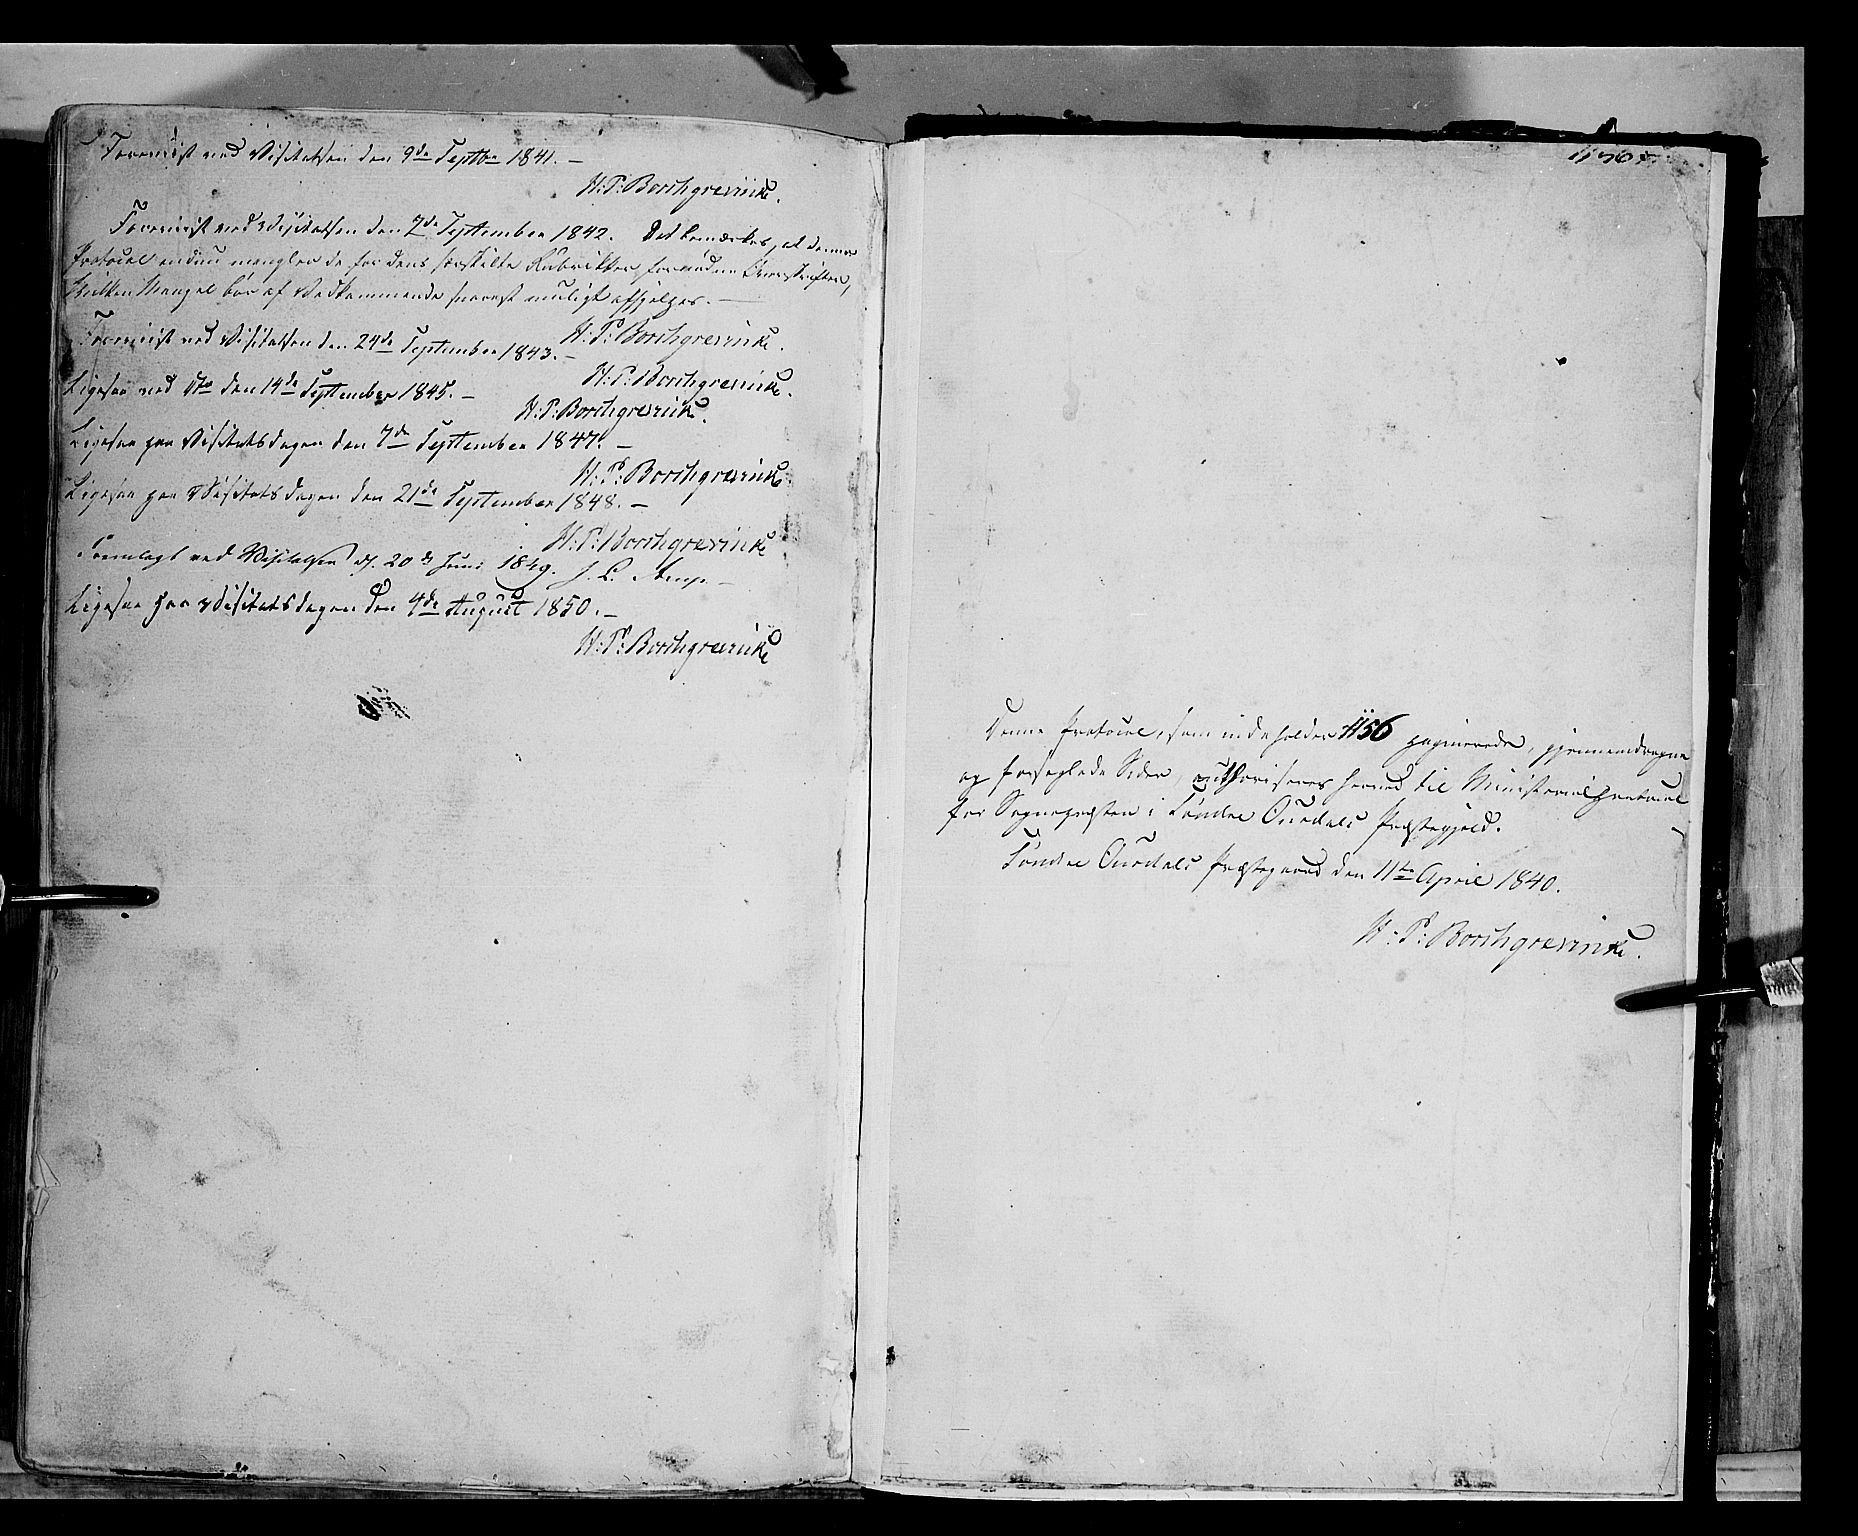 Foreviist ved Visitatsen den 9de Septbr 1841. –
H: P: Borchgrevink.
Foreviist ved Visitatsen den 7de September 1842. Det bemærkes, at denne
Protocol endnu mangler de for dens særskilte Rubrikker fornødne Overskrifter,
hvilken Mangel bør af Vedkommende snarest muligt afhjelpes. –
H: P: Borchgrevink.
Foreviist ved Visitatsen den 24de September 1843. –
H: P: Borchgrevink.
Ligesaa ved Do den 14de September 1845. –
H: P: Borchgrevink.
Ligesaa paa Visitatsdagen den 7de September 1847. –
H: P: Borchgrevink
Ligesaa paa Visitatsdagen den 21de September 1848. –
H: P: Borchgrevink
Fremlagt ved Visitatsen d. 20de Juni 1849. J. L. Arup –
Ligesaa paa Visitatsdagen den 4de August 1850. –
H: P: Borchgrevink
1156
Denne Protocol, som indeholder 1156 paginerede, gjennemdragne
og forseglede Sider, authoriseres herved til Ministerialprotocol
for Sognepræsten i Søndre Ourdals Præstegjeld.
Søndre Ourdals Præstegaard den 11te April 1840.
H: P: Borchgrevink.